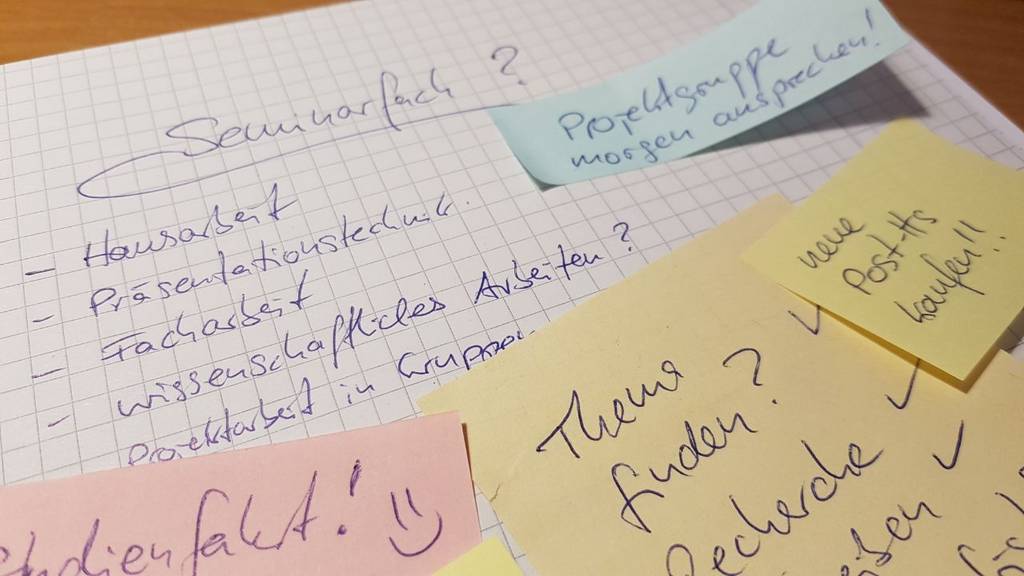 Seminarfach ?
- Hausarbeit
- Präsentationstechnik.
- Facharbeit
- wissenschaftliches Arbeiten ?
Projektarbeit in Gruppen
Projektgruppe
morgen ansprechen!
neue
Post-Its
kaufen!!
Thema
finden?
Recherche
Studienfakt!